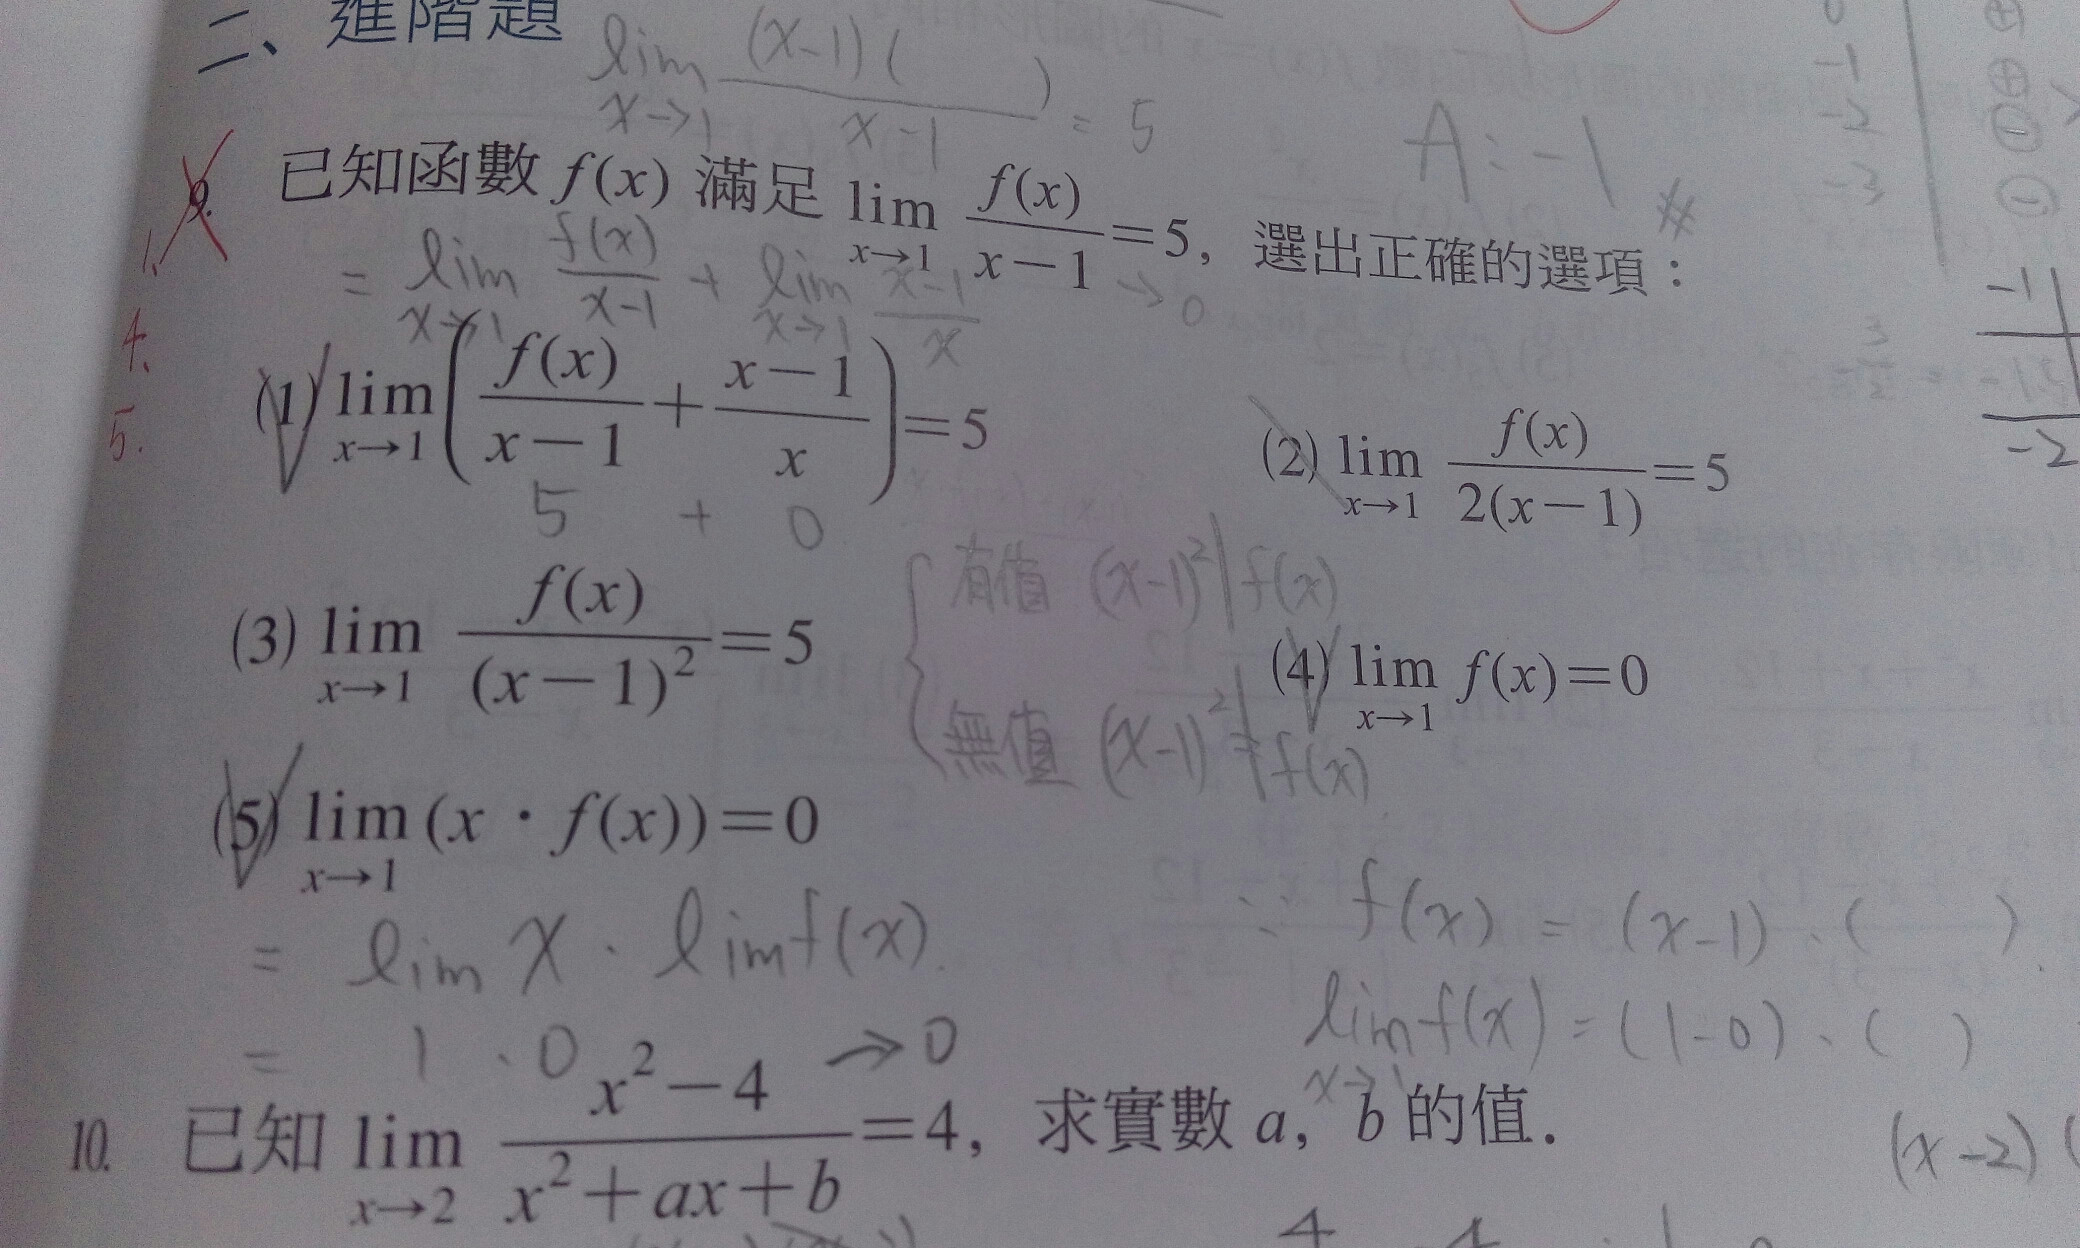 二、進階題
lim x→1 (x-1)( )/x-1 = 5
A: -1 #
9. 已知函數 f(x) 滿足 lim x→1 f(x)/x−1 =5, 選出正確的選項:
1.
4.
5.
= lim x→1 f(x)/x-1 + lim x→1 x-1/x →0
(1) lim x→1 (f(x)/x−1 + x−1/x)=5
5 + 0
(2) lim x→1 f(x)/2(x−1) =5
(3) lim x→1 f(x)/(x−1)² =5
有值 (x-1)² | f(x)
無值 (x-1)² ∤ f(x)
(4) lim x→1 f(x)=0
(5) lim x→1 (x・f(x))=0
= lim x · lim f(x)
= 1 · 0
∵ f(x) = (x-1)·( )
lim x→1 f(x) = (1-0)·( )
10. 已知 lim x→2 x²−4/x²+ax+b =4, 求實數 a, b 的值.
→0
(x-2)(
0
-1
-2
-3
⊕
⊕
⊖
⊖
-1
-2